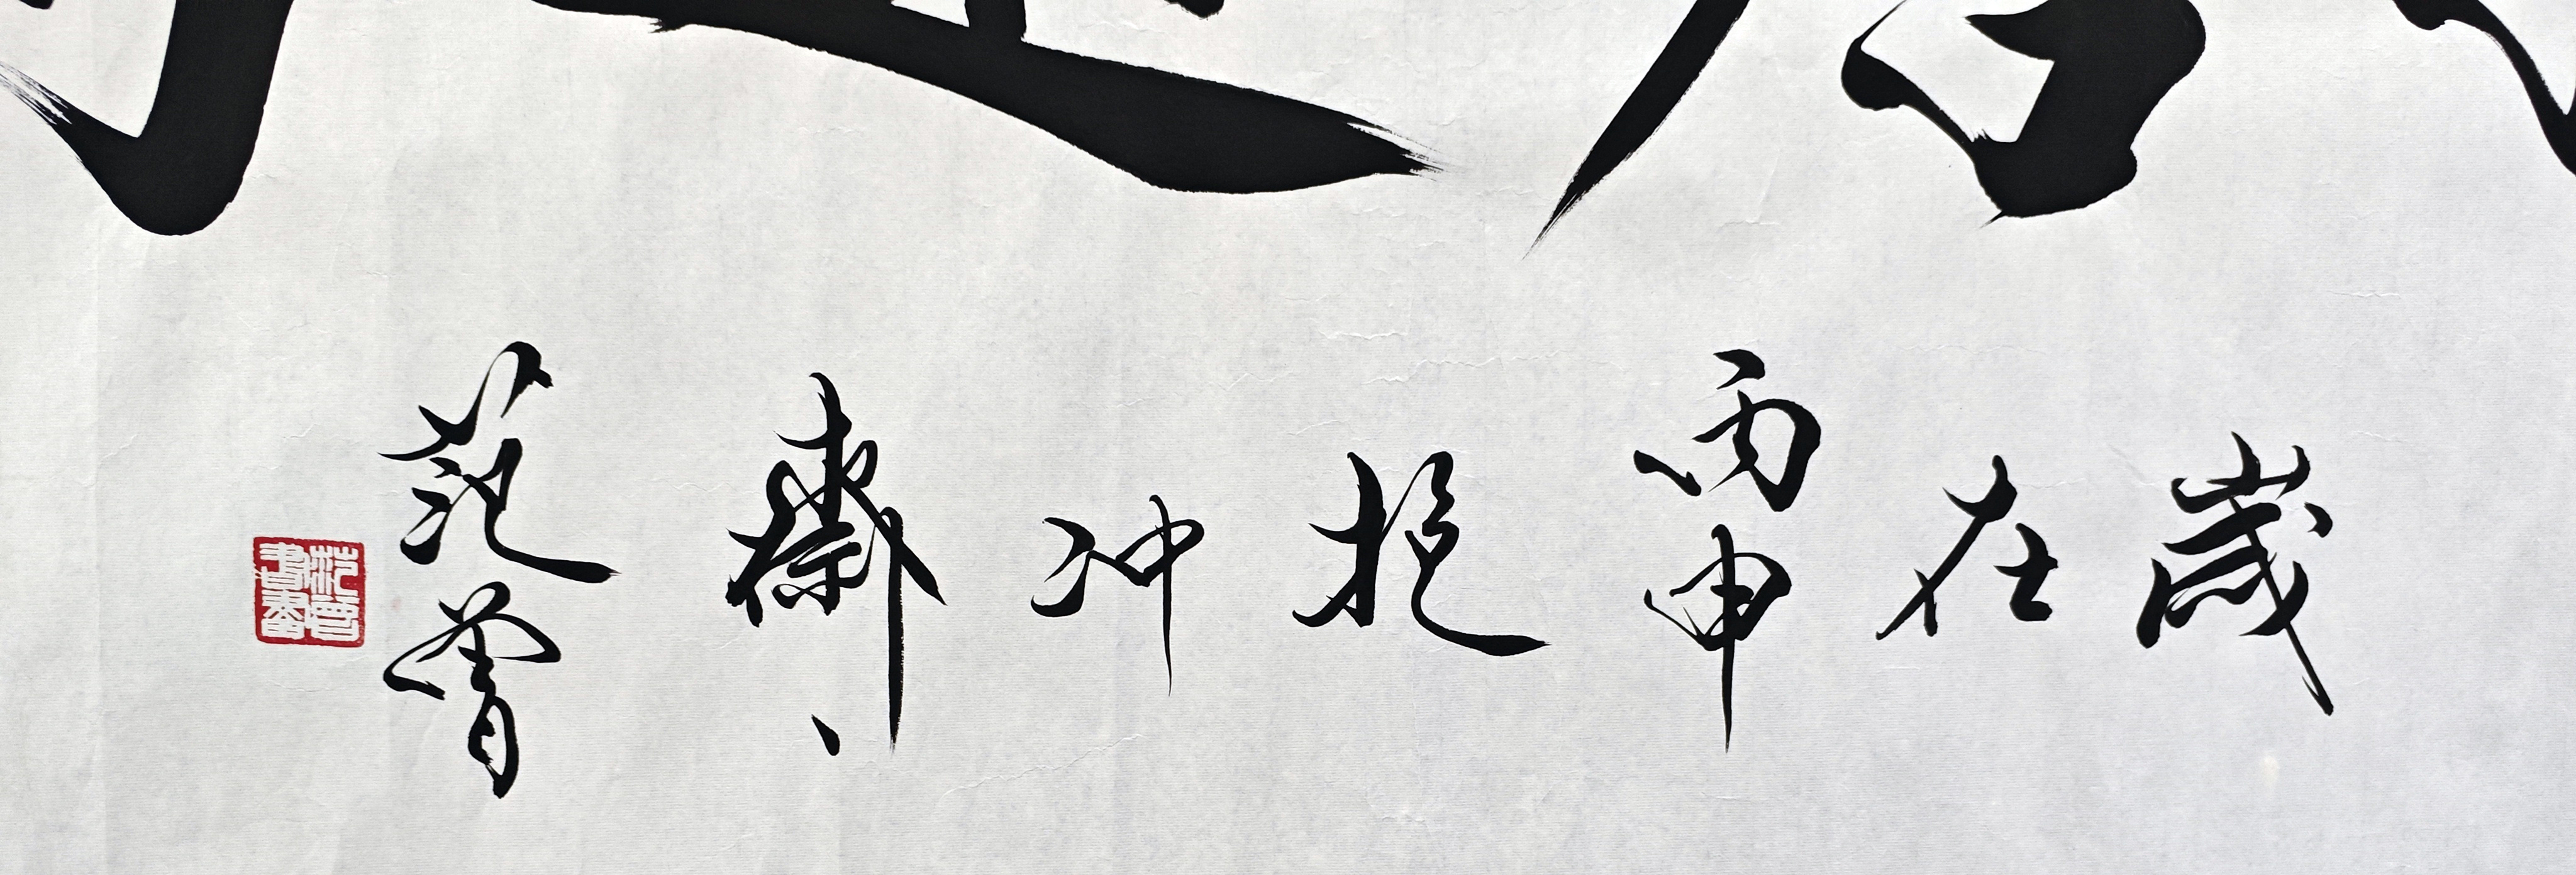 歲在
丙申
抱冲齋
范曾
范曾書畫